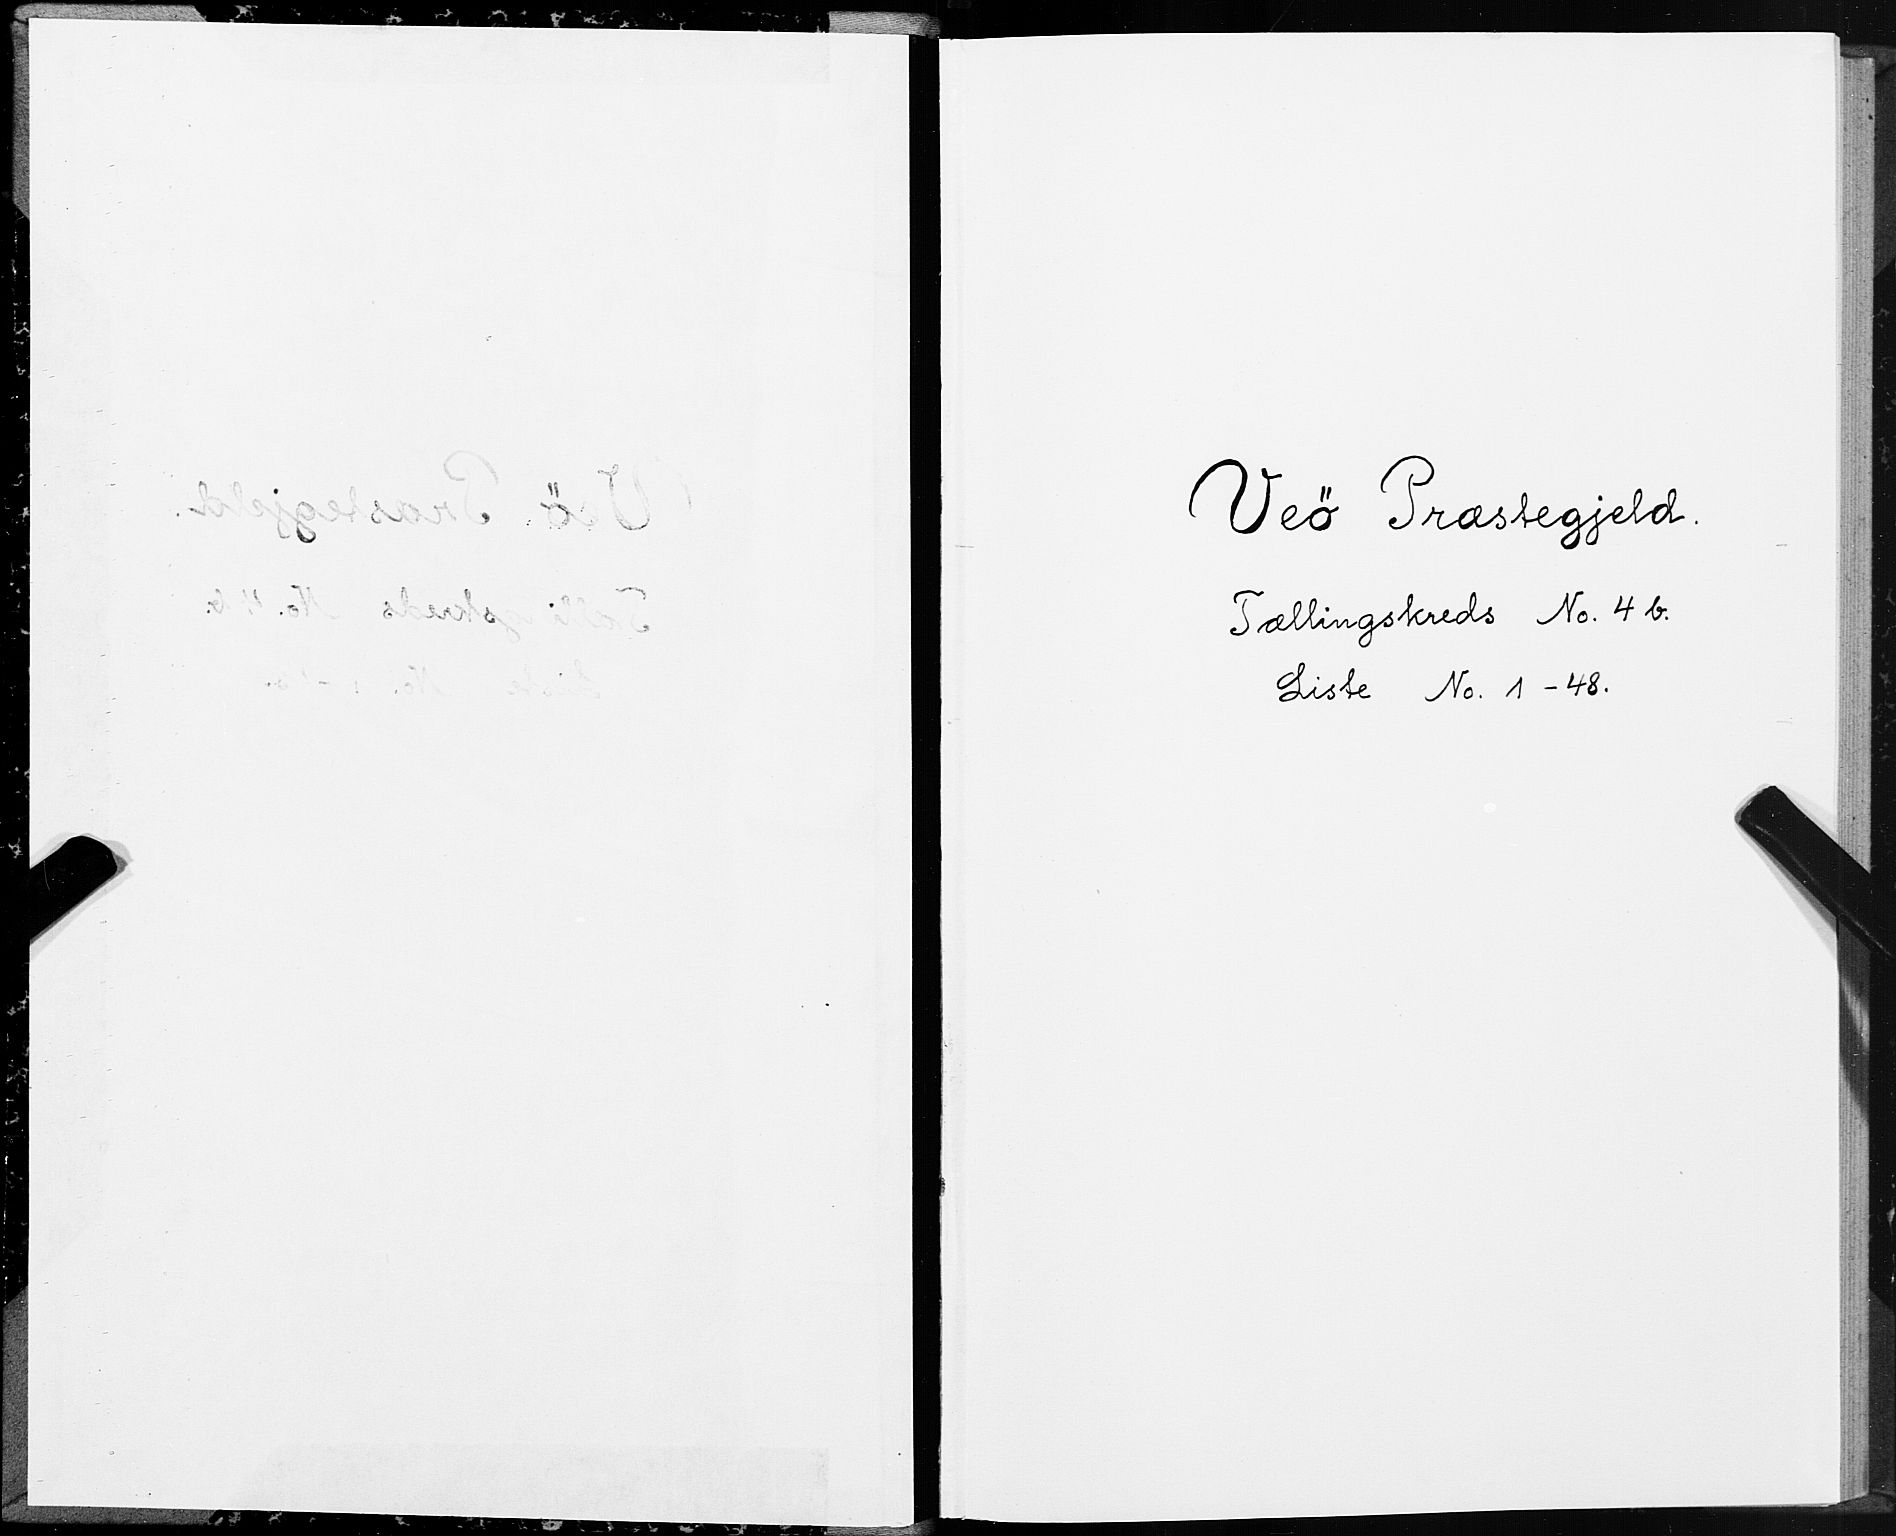 Veö Præstegjeld.
Tællingskreds No. 4 b.
Liste No. 1 - 48.